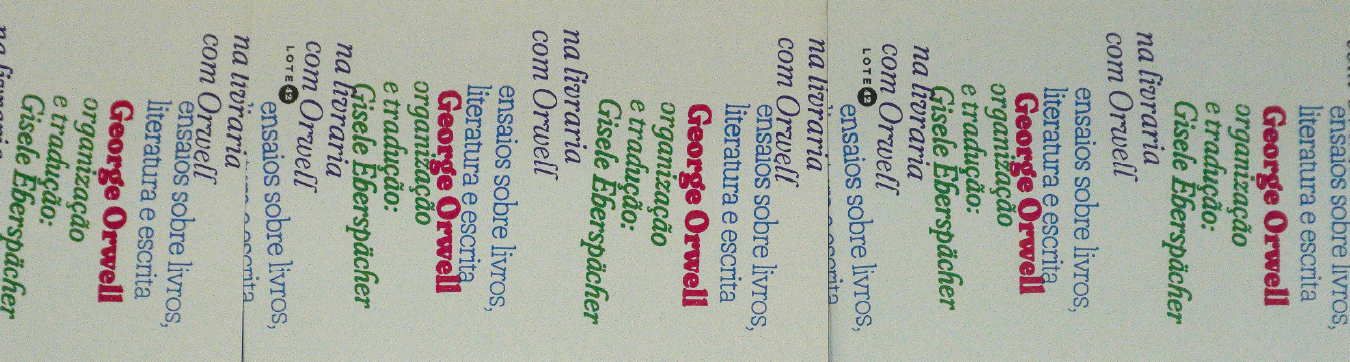 ensaios sobre livros,
literatura e escrita
George Orwell
organização
e tradução:
Gisele Eberspächer
na livraria
com Orwell
ensaios sobre livros,
literatura e escrita
George Orwell
organização
e tradução:
Gisele Eberspächer
na livraria
com Orwell
LOTE 42
ensaios sobre livros,
na livraria
com Orwell
ensaios sobre livros,
literatura e escrita
George Orwell
organização
e tradução:
Gisele Eberspächer
na livraria
com Orwell
ensaios sobre livros,
literatura e escrita
George Orwell
organização
e tradução:
Gisele Eberspächer
na livraria
com Orwell
LOTE 42
ensaios sobre livros,
na livraria
com Orwell
ensaios sobre livros,
literatura e escrita
George Orwell
organização
e tradução:
Gisele Eberspächer